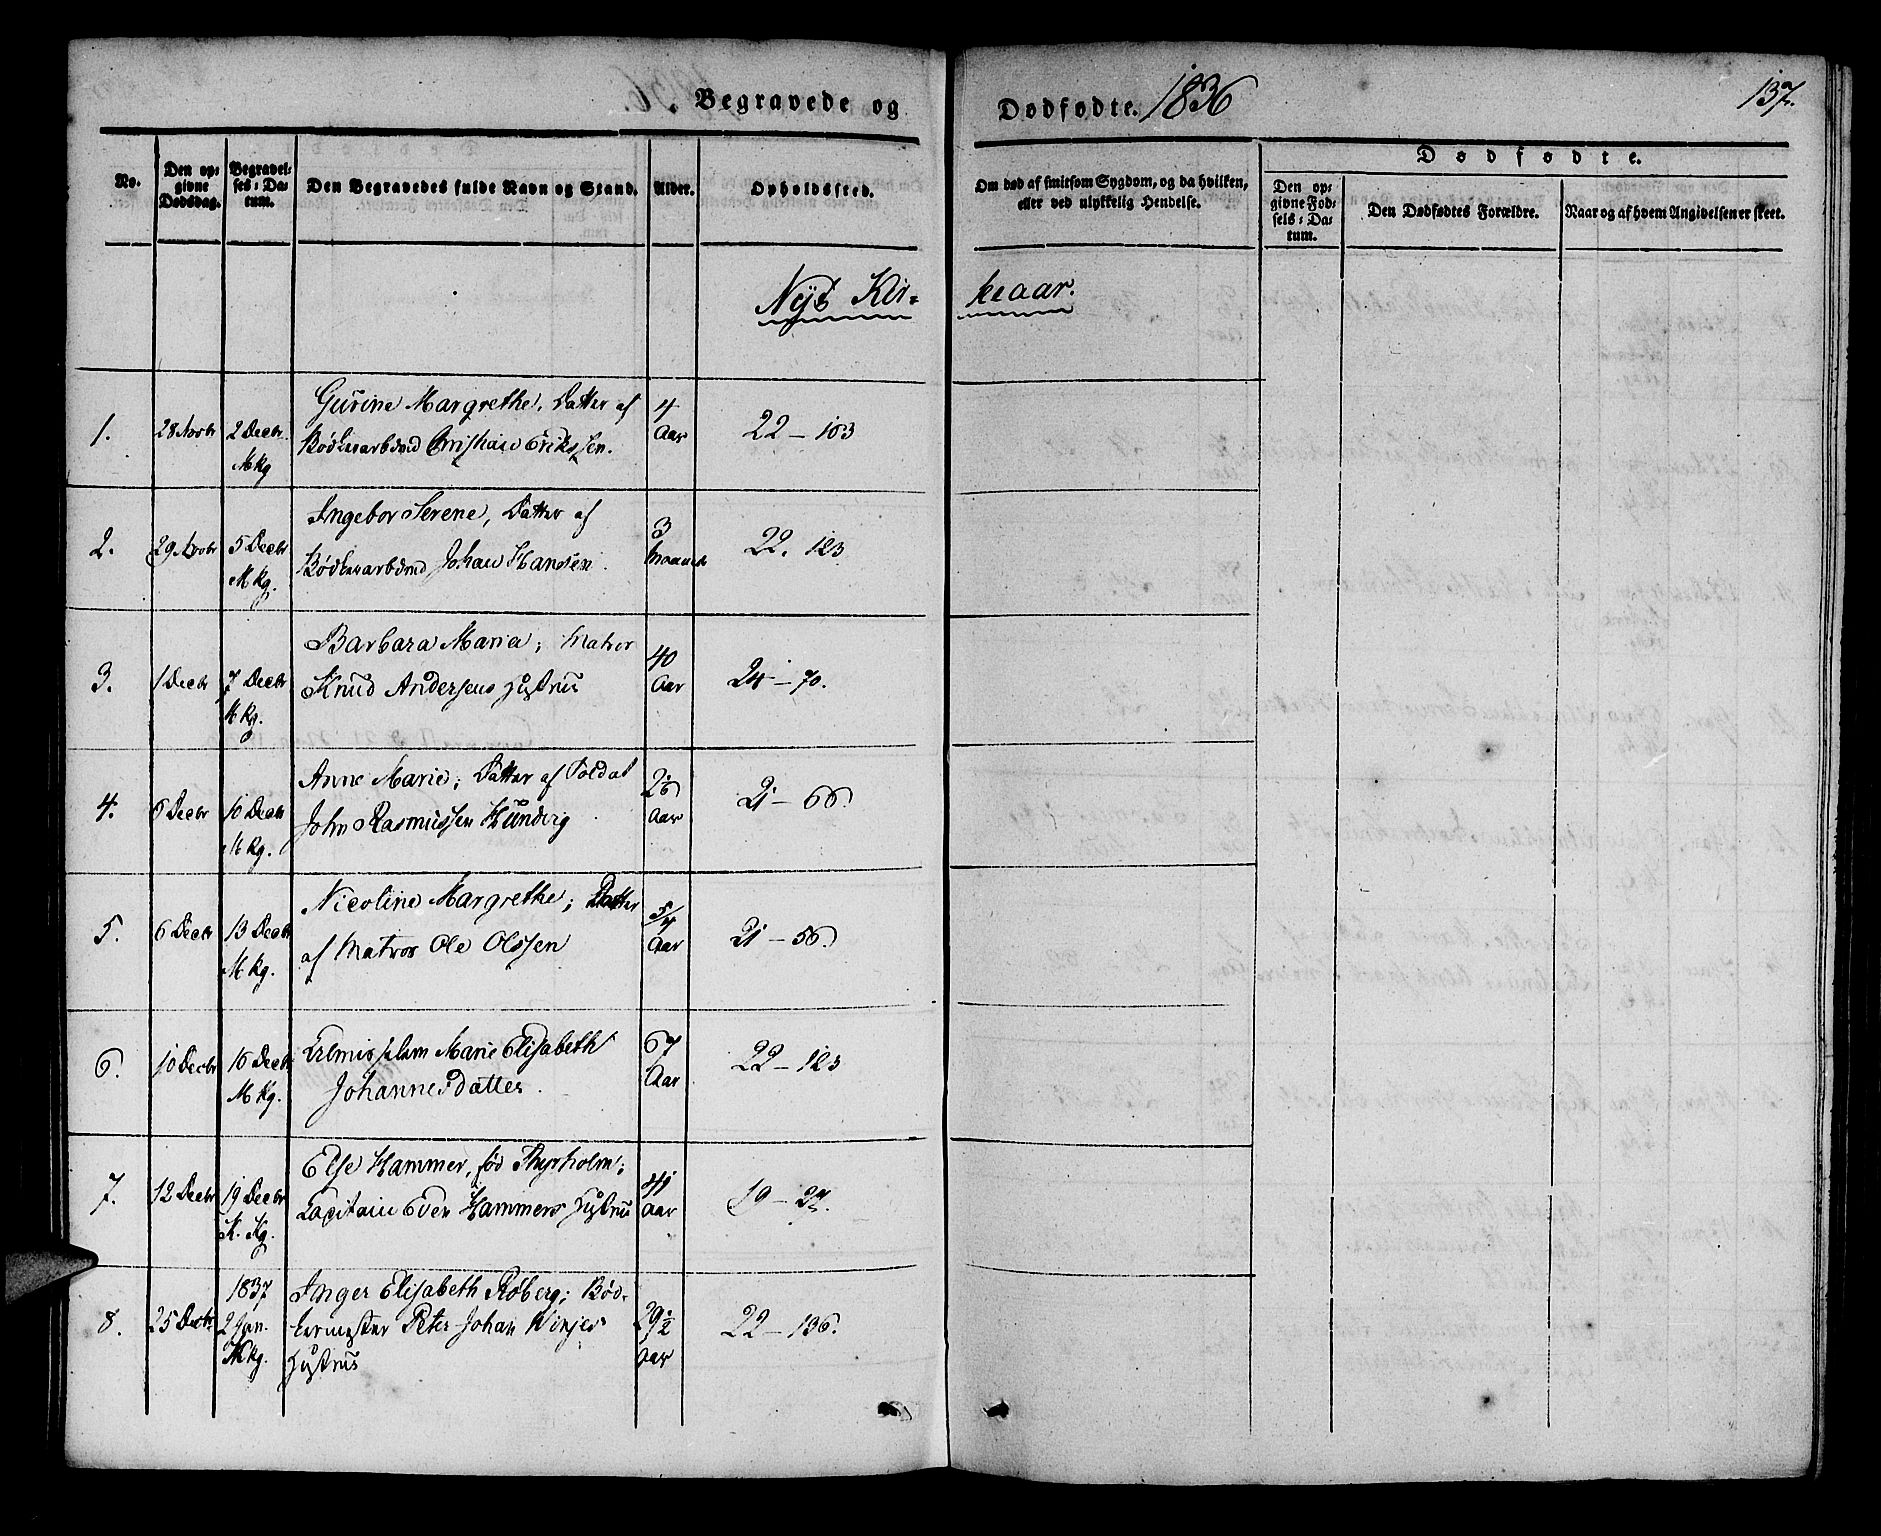 Begravede og Dödfödte. 1836 137.
No.
Den opgivne Dødsdag.
Begravelses-Datum.
Den Begravedes fulde Navn og Stand.
Alder.
Opholdssted.
Om død af smitsom Sygdom, og da hvilken,
eller ved ulykkelig Hendelse.
Dødfødte.
Den opgivne Fødsels-Datum.
Den Dødfødtes Forældre.
Naar og af hvem Angivelsen er skeet.
Nyt Kir-
keaar.
1. 28 Novbr 2 Decbr. Gurine Margrethe, Datter af 4 Aar 22 – 103
M Kg Bødkerarbmd Christian Erikssen.
2. 29 Novbr 5 Decbr Ingebor Serene, Datter af 3 22. 123
M Kg. Bødkerarbmd Johan Hanssen
3. 1 Decbr 7 Decbr Barbara Maria; Matros 40 Aar 24 – 70.
M Kg. Knud Andersens Hustrue
4. 6 Decbr 10 Decbr Anne Marie; Datter af Soldat Aar 21 – 66.
M Kg. John Rasmussen Hundvig
5. 6 Decbr 13 Decbr Nicoline Margrethe; Datter 5/4 Aar 21 – 56.
M Kg. af Matros Ole Olssen
6. 10 Decbr 16 Decbr Marie Elisabeth 67 Aar 22 – 123
M Kg. Johannesdatter.
7. 12 Decbr 19 Decbr Else Hammer, fød Thyrholm; 41 Aar 19 – 27.
K. Kg. Capitain Even Hammers Hustrue
8. 25 Decbr 1837 Inger Elisabeth Roberg; Bød- 29½ Aar 22 – 136.
2 Jan. kermester Peter Johan
M Kg. Hustrus